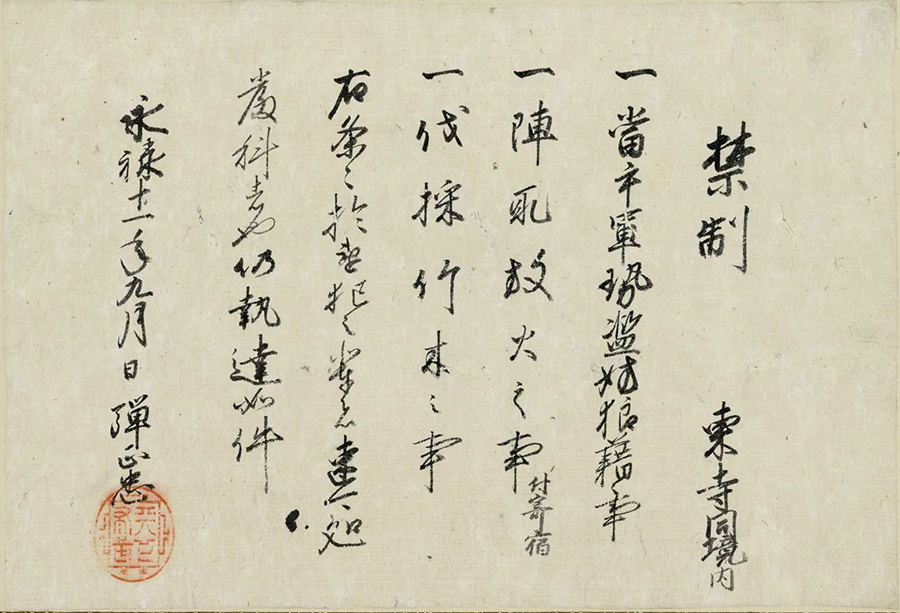 禁制 東寺同境内
一當手軍勢濫妨狼藉事
一陣取放火之事付寄宿
一伐採竹木之事
右条々於違犯之輩者速可処
厳科者也仍執達如件
永禄十一年九月日 弾正忠